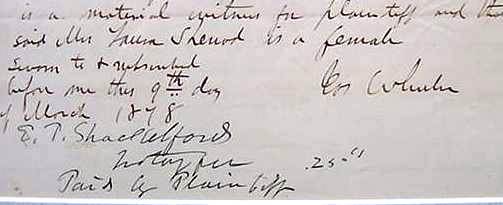 is a material witness for plaintiff and that
said Mrs Laura Sherrod is a female
Sworn to & subscribed
before me this 9th day Jos Wheeler
of March 1878
E. P. Shackelford
Not Pub
Paid by Plaintiff .25"